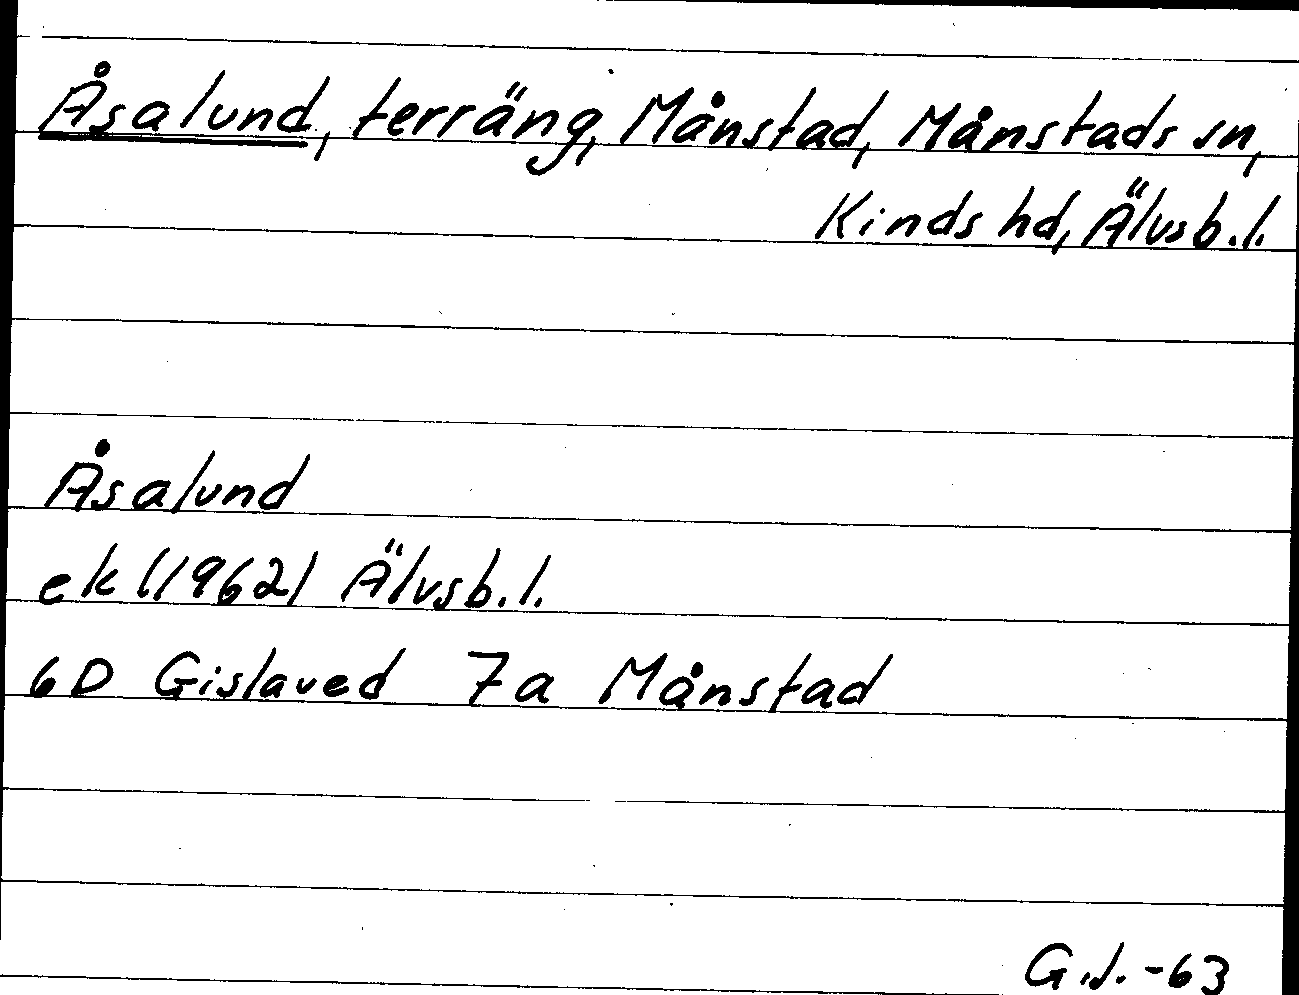 Åsalund, terräng, Månstad, Månstads sn,
Kinds hd, Älvsb.l.
Åsalund
ek (1962) Älvsb.l.
6D Gislaved 7a Månstad
G.J. -63